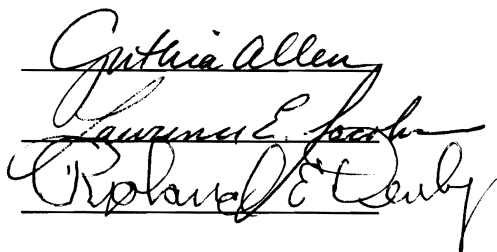 Cynthia Allen
Laurence E. Jacobs
Roland E Denby